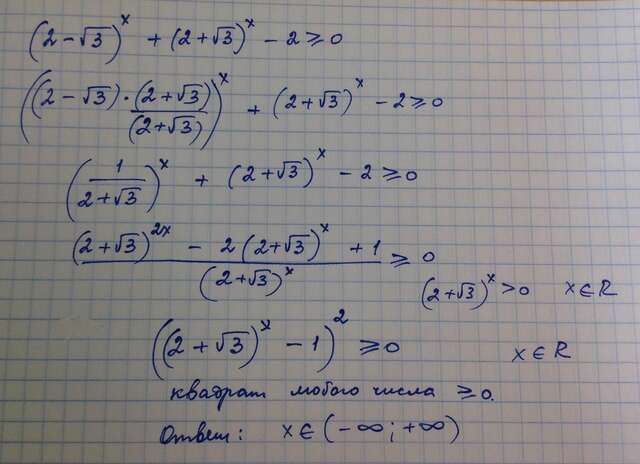 (2 − √3)^x + (2 + √3)^x − 2 ≥ 0
((2 − √3) · (2 + √3) / (2 + √3))^x + (2 + √3)^x − 2 ≥ 0
(1 / (2 + √3))^x + (2 + √3)^x − 2 ≥ 0
((2 + √3)^2x − 2 (2 + √3)^x + 1) / (2 + √3)^x ≥ 0
(2 + √3)^x > 0 x ∈ R
((2 + √3)^x − 1)^2 ≥ 0 x ∈ R
квадрат любого числа ≥ 0.
Ответ: x ∈ (−∞; +∞)